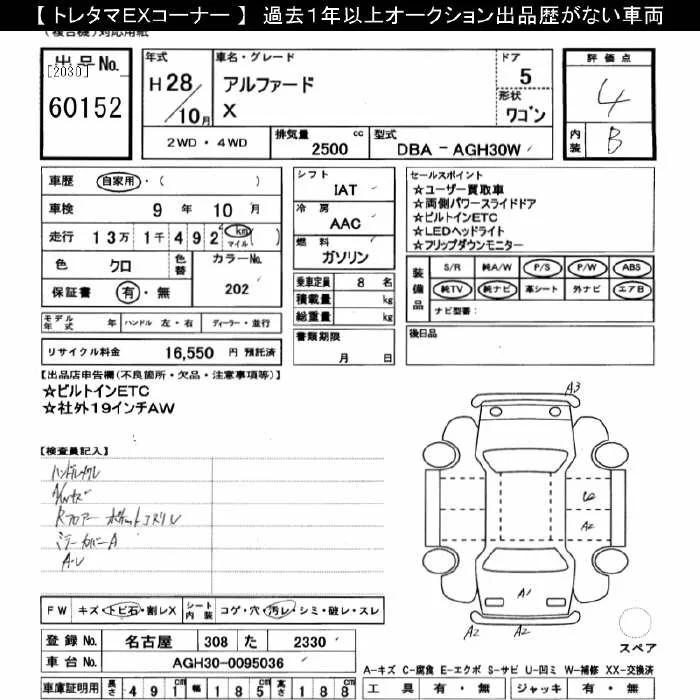 【 トレタマEXコーナー 】 過去1年以上オークション出品歴がない車両
(複合機)対応用紙
出品No.
[2030]
60152
年式
H28/10月
車名・グレード
アルファード
X
ドア
5
形状
ワゴン
評価点
4
内装
B
2WD・4WD
排気量
2500 cc
型式
DBA - AGH30W
車歴 自家用・( )
車検 9 年 10 月
走行 13万 1千 492 km マイル ( )
色 クロ
色替
カラーNo.
202
保証書 有・無
モデル年式 年 ハンドル 左・右 ディーラー・並行
リサイクル料金 16,550 円 預託済
シフト
IAT
冷房
AAC
燃料
ガソリン
乗車定員 8 名
積載量 kg
総重量 kg
書類期限
月 日
セールスポイント
☆ユーザー買取車
☆両側パワースライドドア
☆ビルトインETC
☆LEDヘッドライト
☆フリップダウンモニター
装備品
S/R 純A/W P/S P/W ABS
純TV 純ナビ 革シート 外ナビ エアB
ナビ型番:
後日品
【出品店申告欄(不良箇所・欠品・注意事項等)】
☆ビルトインETC
☆社外19インチAW
【検査員記入】
ハンドルスレ
Rフロアー
ミラーカバーA
A3
A2
A1
A2
A2
FW キズ・トビ石・割レX シート内装 コゲ・穴・汚レ・シミ・破レ・スレ
登録No. 名古屋 308 た 2330
車台No. AGH30-0095036
車庫証明用 長さ 491 幅 185 高さ 188
スペア
A-キズ C-腐食 E-エクボ S-サビ U-凹ミ W-補修 XX-交換済
工具 有・無 ジャッキ 有・無